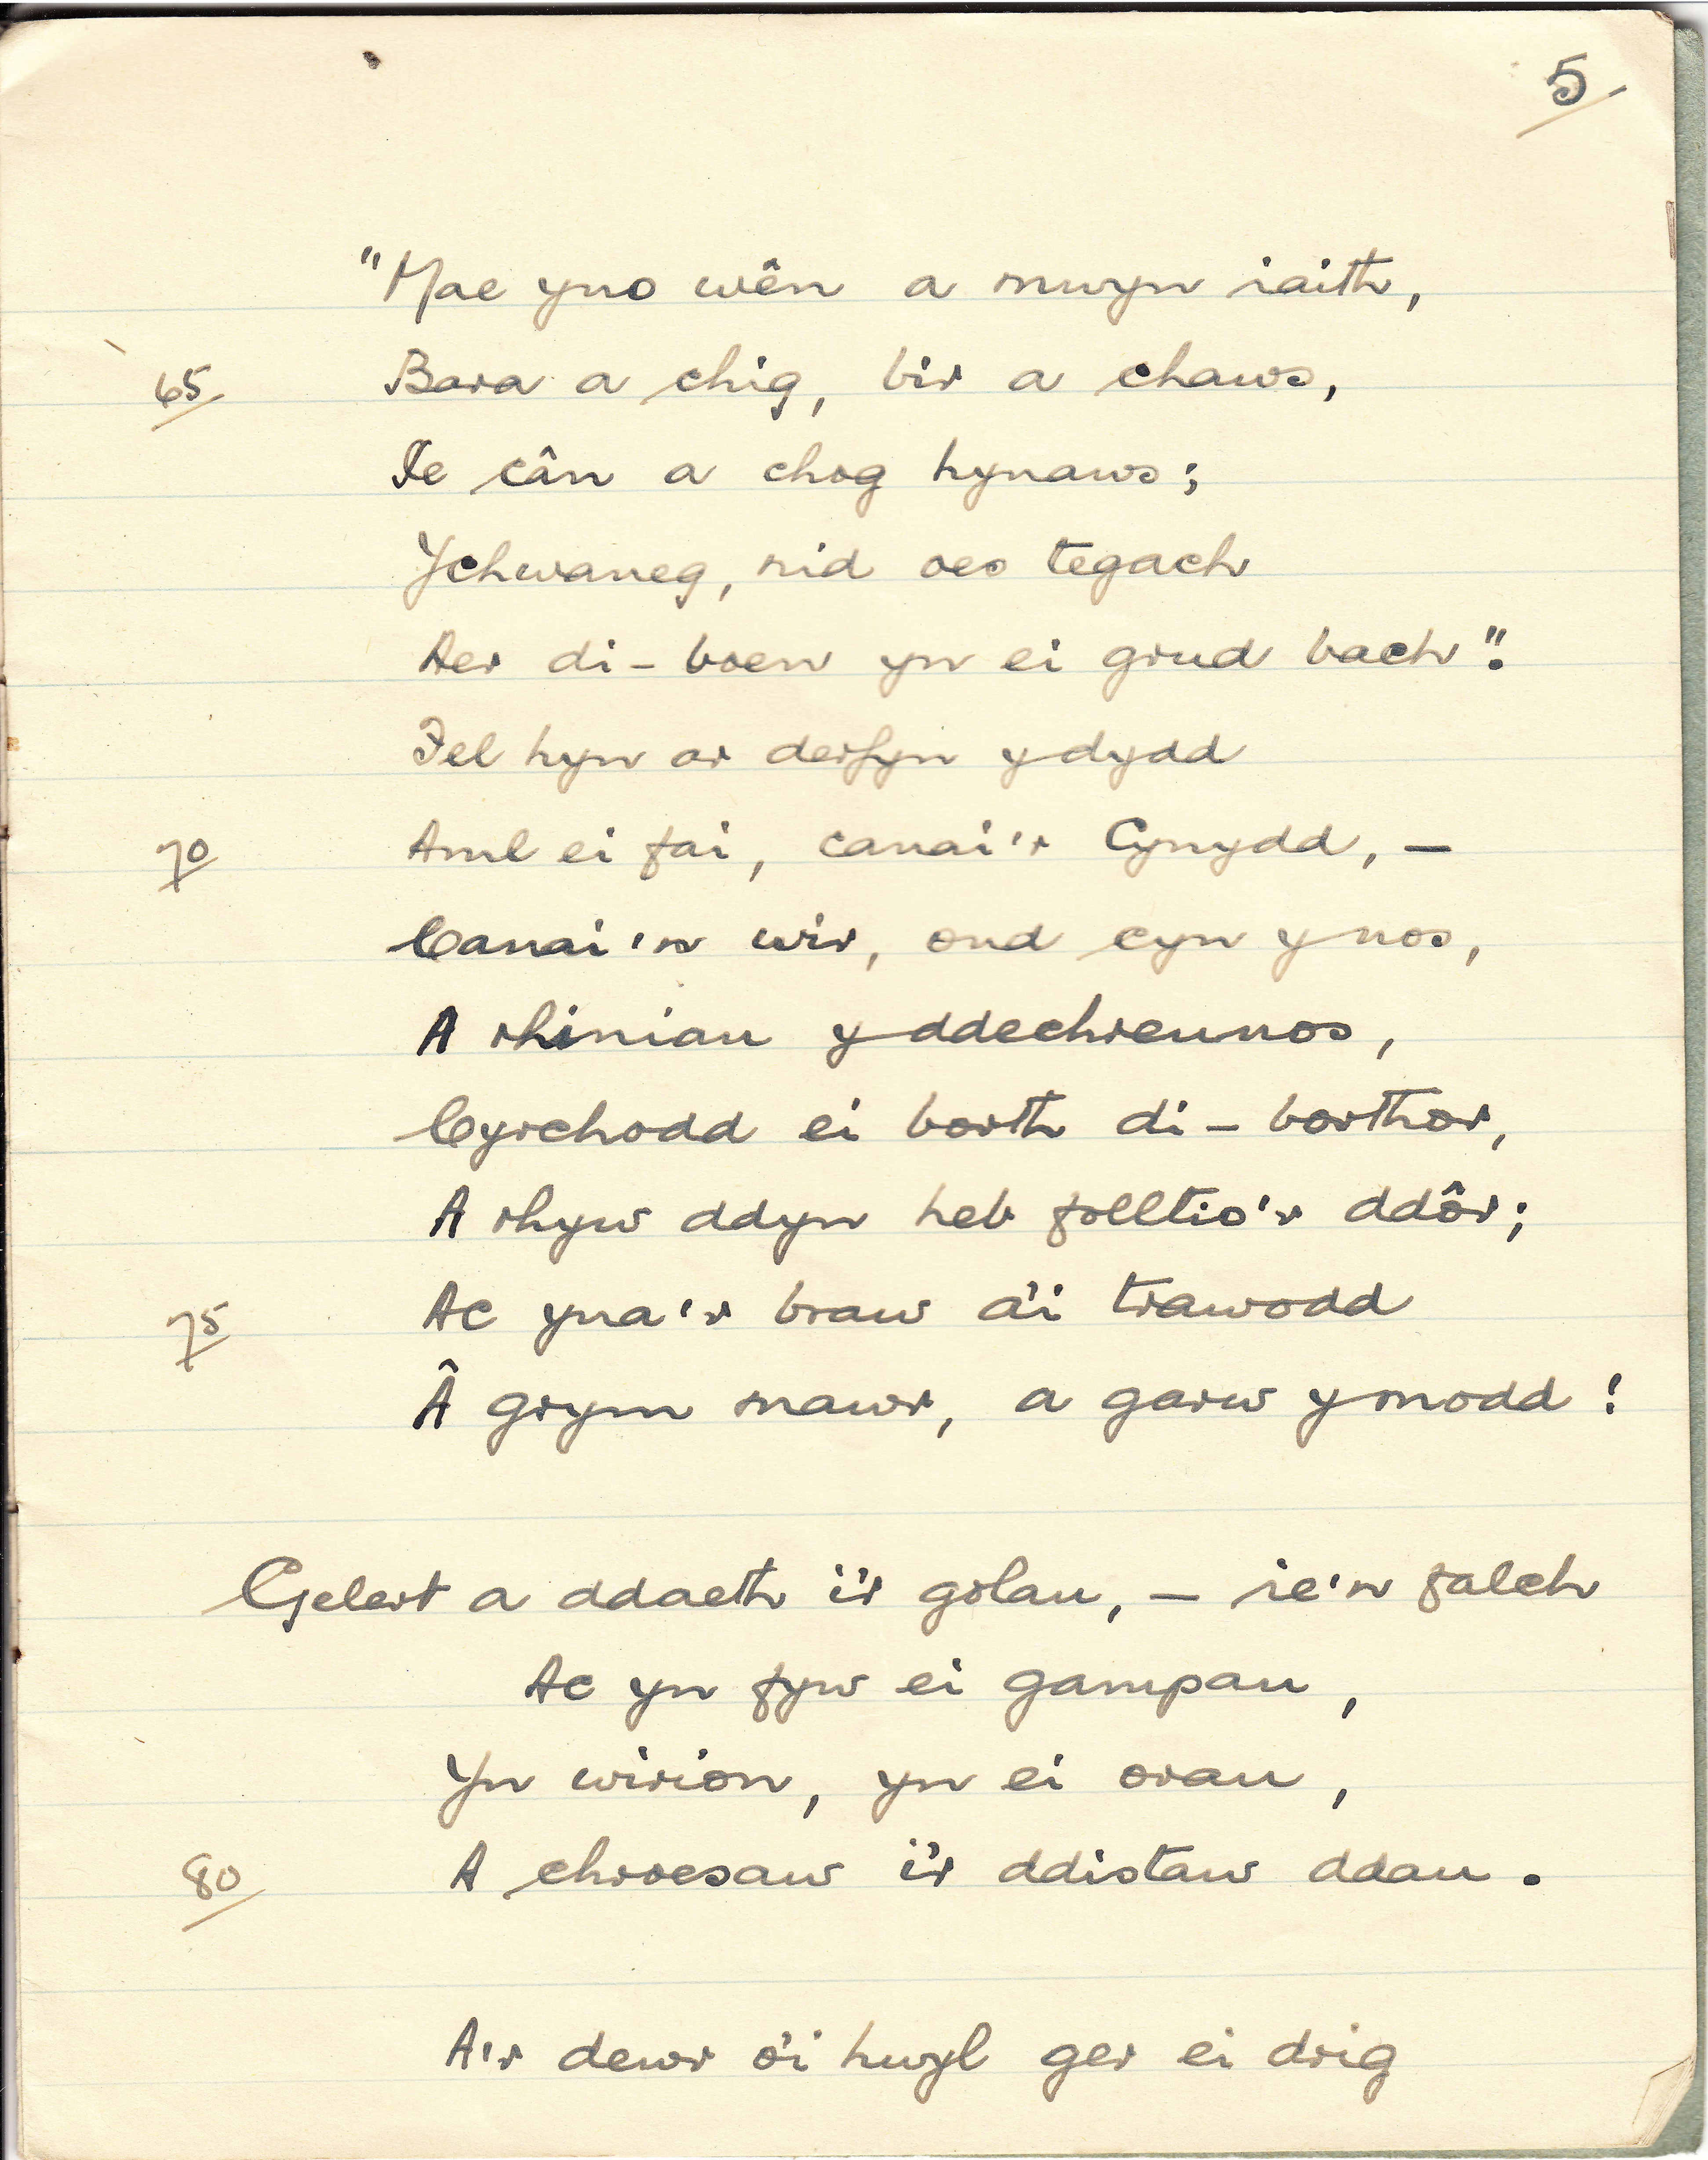 5
"Mae yno wên a mwyn iaith,
65 Bara a chig, bir a chaws,
Ie cân a chog hynaws;
Ychwaneg, nid oes tegach
Aer di-boen yn ei grud bach".
Fel hyn ar derfyn y dydd
70 Aml ei fai, canai'r Cynydd, –
Canai'n wir, ond cyn y nos,
A rhiniau y ddechreunos,
Cyrchodd ei borth di-borthor,
A rhyw ddyn heb folltio'r ddôr;
75 Ac yna'r braw a'i trawodd
Â grym mawr, a garw y modd!
Gelert a ddaeth i'r golau, – ie'n falch
Ac yn fyw ei gampau,
Yn wirion, yn ei orau,
80 A chroesaw i'r ddistaw ddau.
A'r dewr o'i hwyl ger ei drig